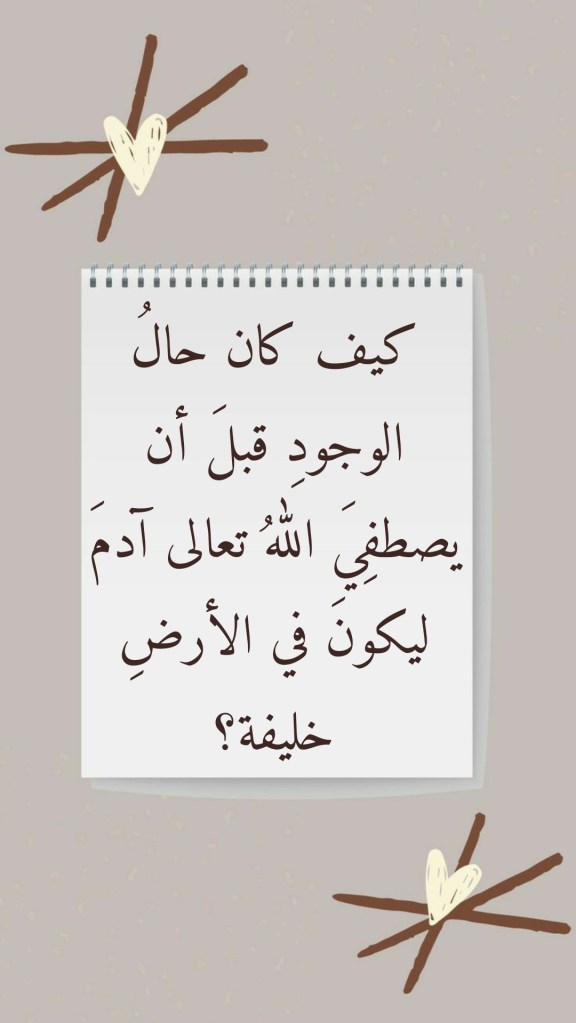 كيف كان حالُ
الوجودِ قبلَ أن
يصطفِيَ اللهُ تعالى آدمَ
ليكونَ في الأرضِ
خليفة؟